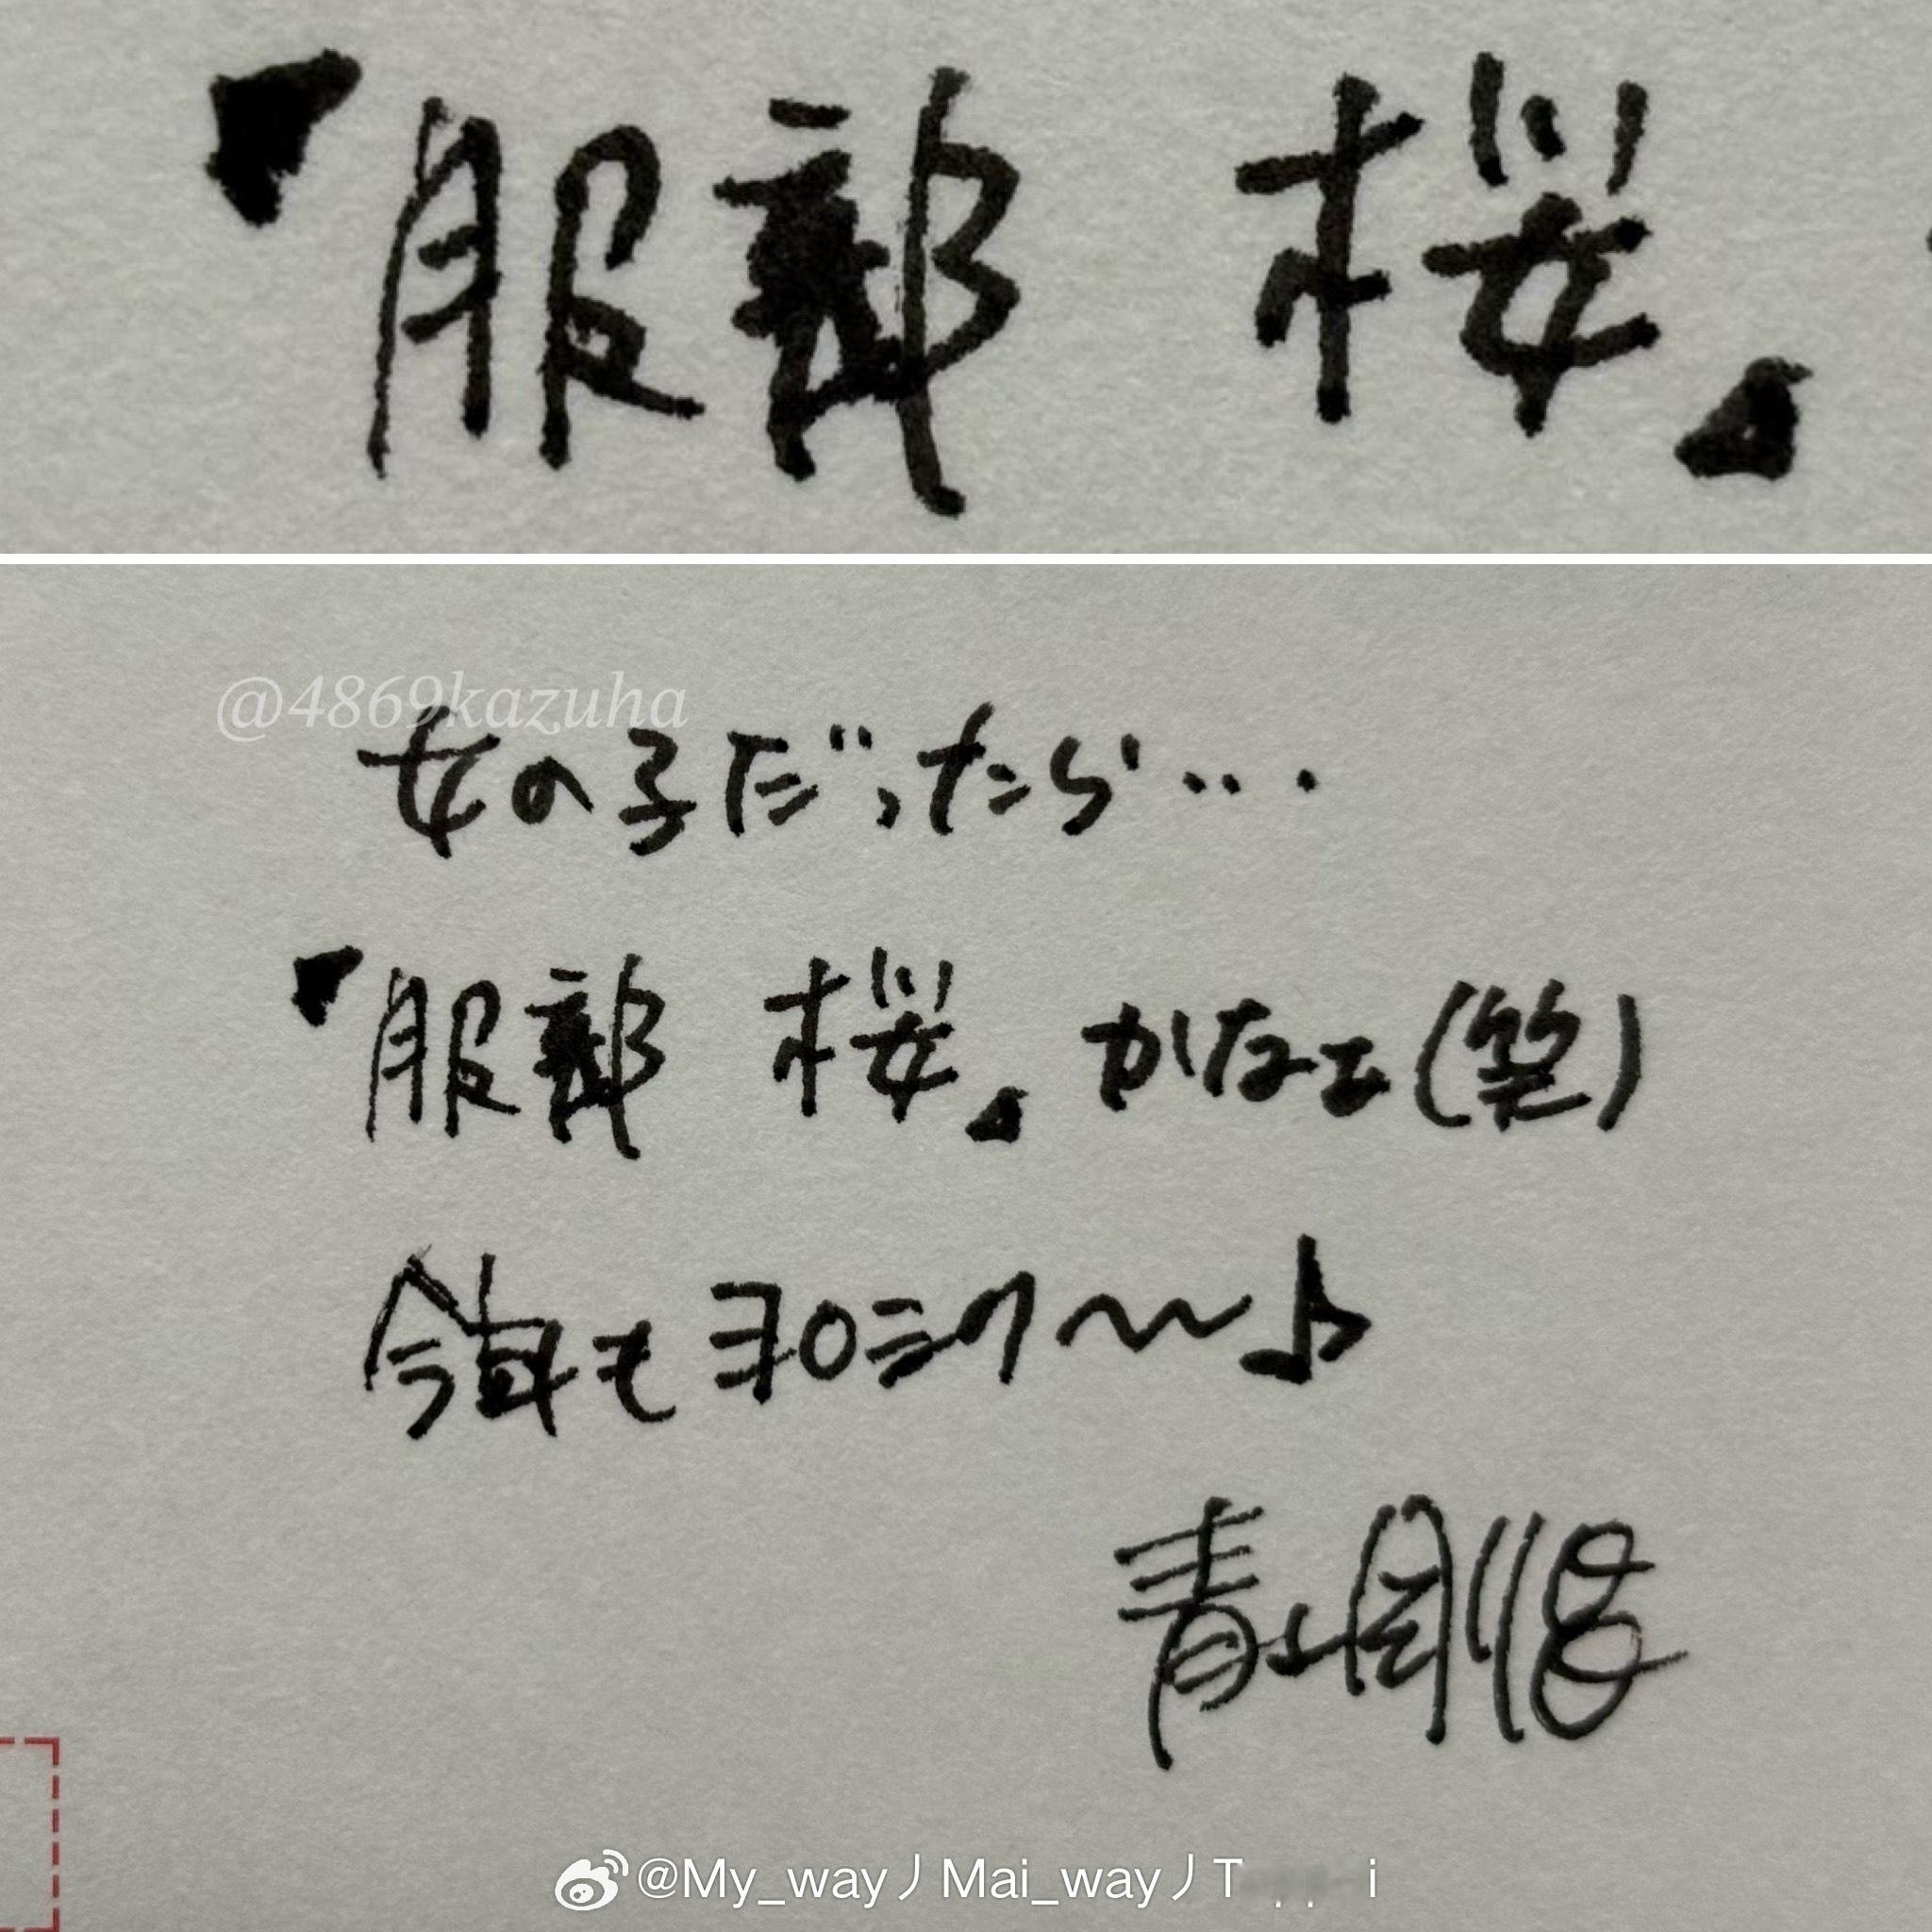 『服部 桜』
@4869kazuha
女の子だったら…
『服部 桜』かなぁ(笑)
今年もヨロシク〜♪
青山剛昌
@My_way丿Mai_way丿T